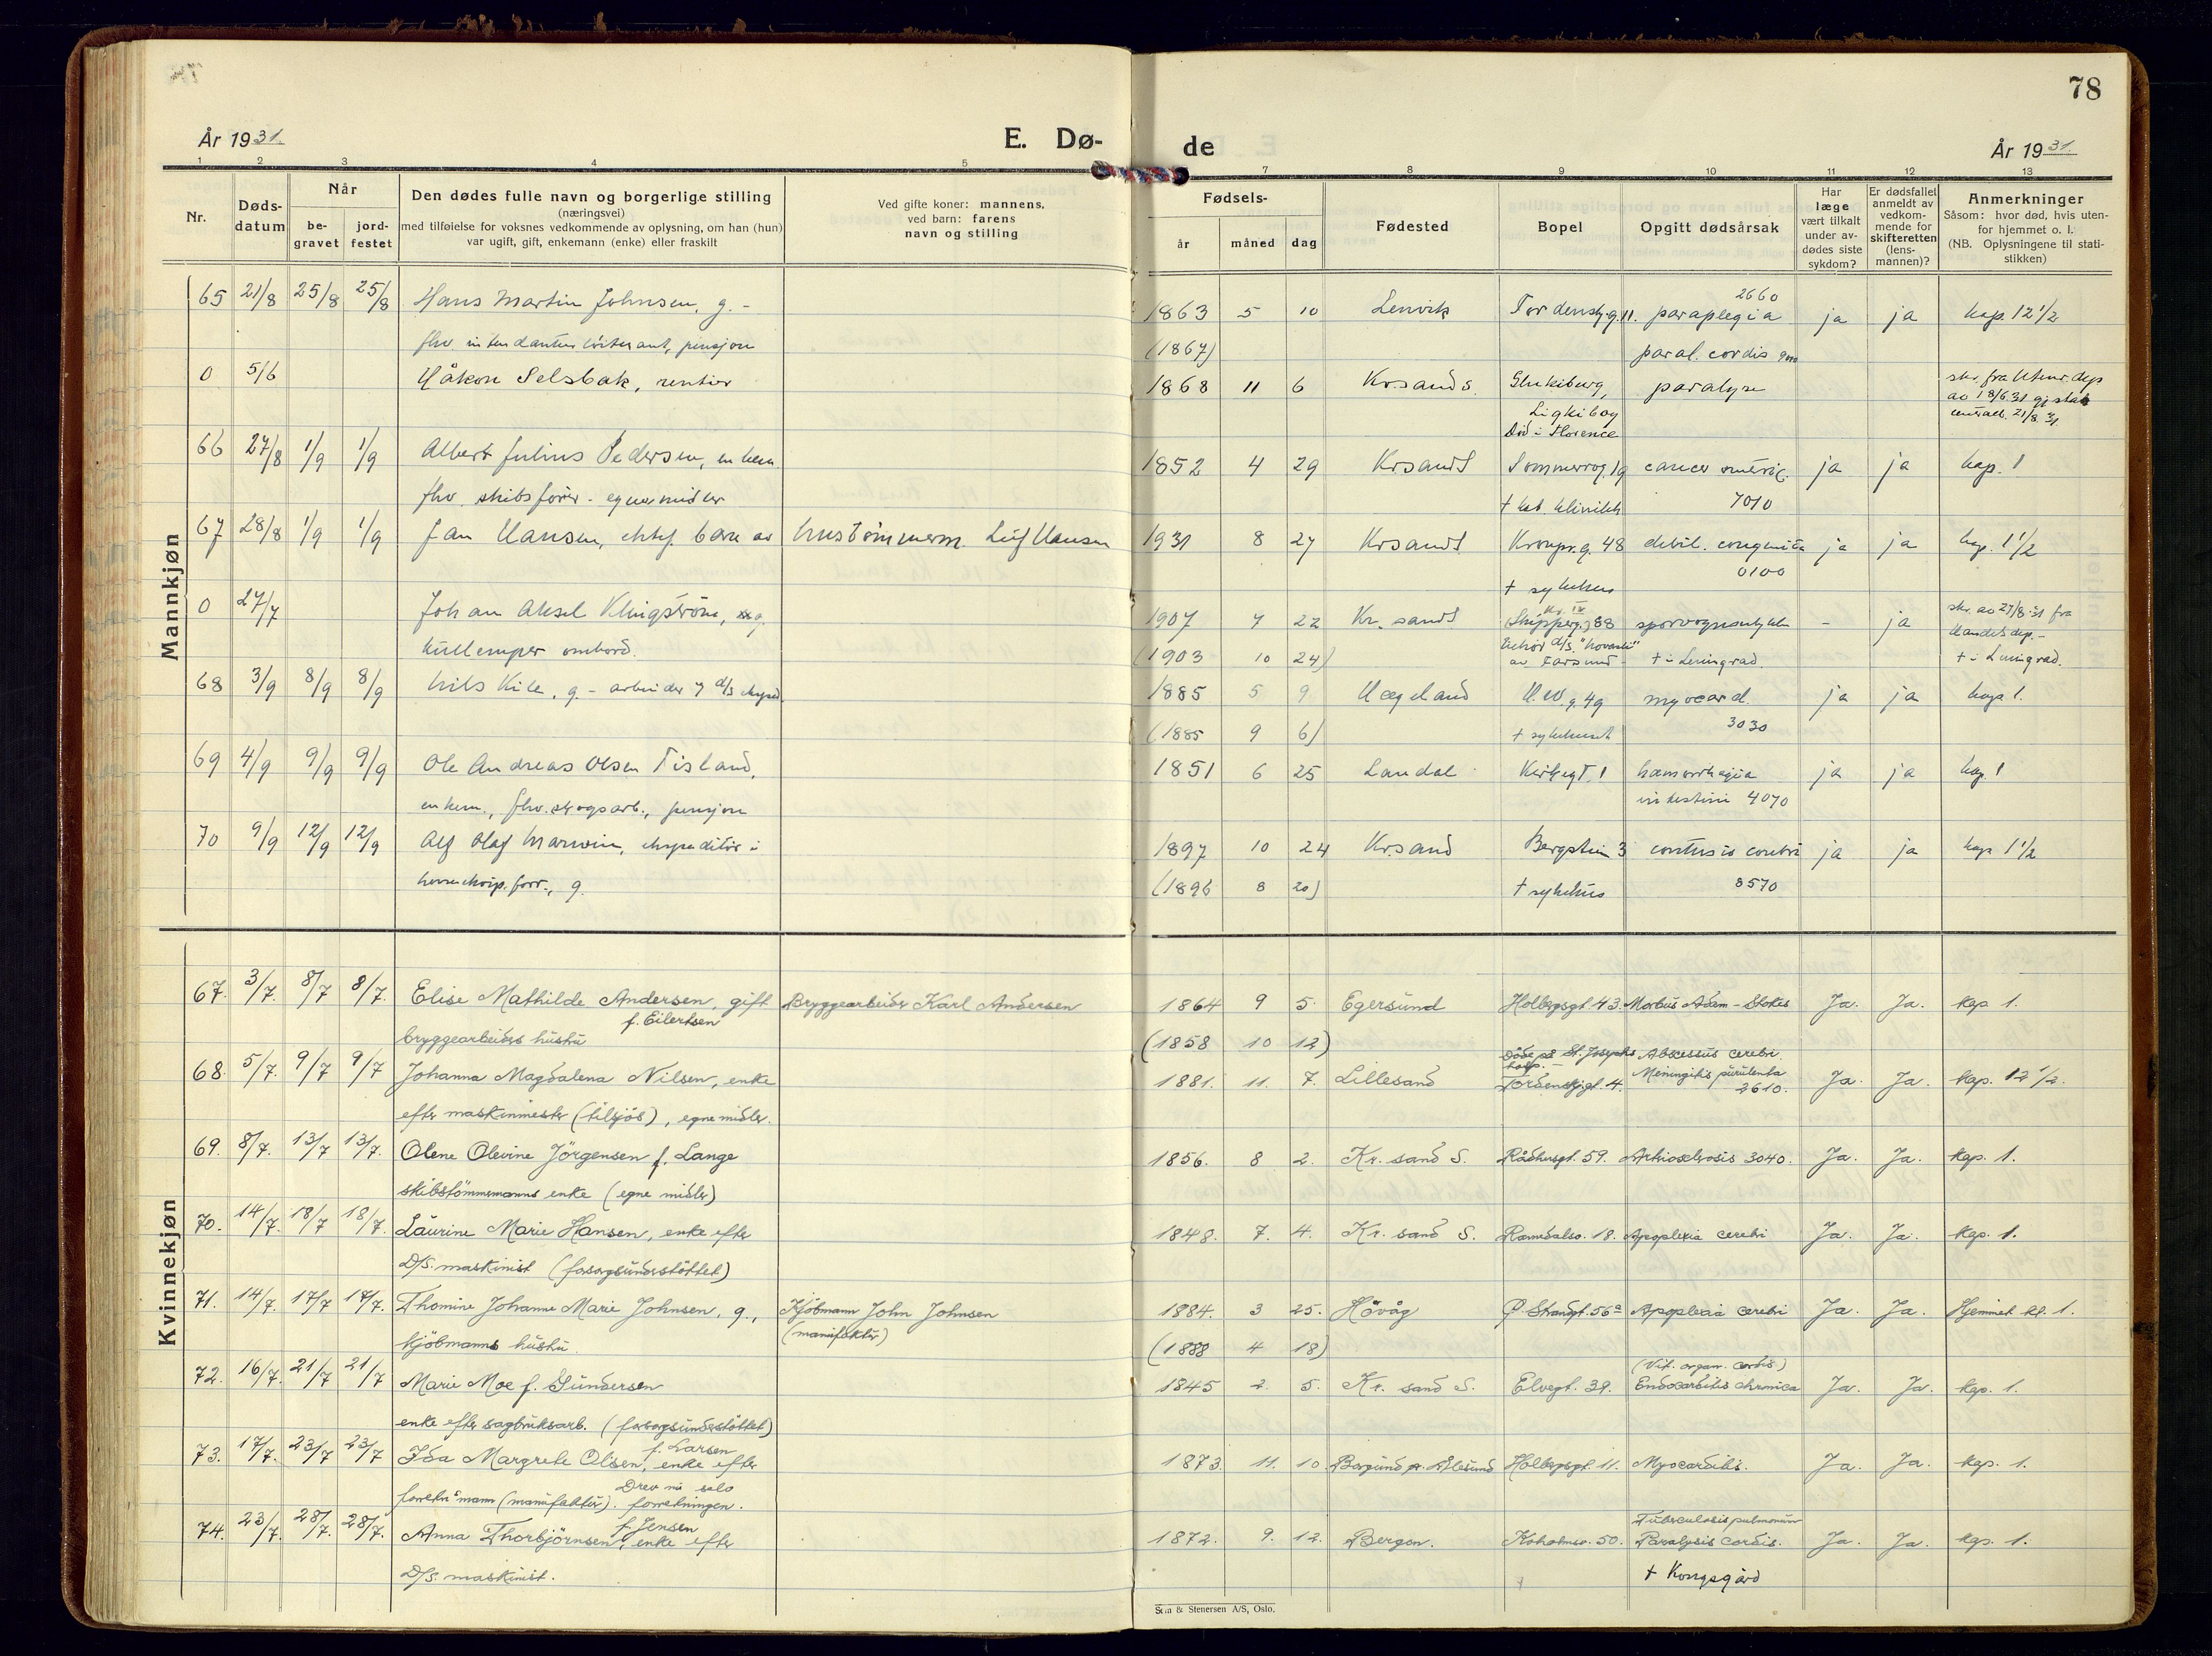 78
År 1931.
E. Dø-
de
År 1931.
1 2 3 4 5
7 8 9 10 11 12 13
Nr.
Døds-
datum
Når
be-
gravet
jord-
festet
Den dødes fulle navn og borgerlige stilling
(næringsvei)
med tilføielse for voksnes vedkommende av oplysning, om han (hun)
var ugift, gift, enkemann (enke) eller fraskilt
Ved gifte koner: mannens,
ved barn: farens
navn og stilling
Fødsels-
år måned dag
Fødested
Bopel
Opgitt dødsårsak
Har
læge
vært tilkalt
under av-
dødes siste
sykdom?
Er dødsfallet
anmeldt av
vedkom-
mende for
skifteretten
(lens-
mannen)?
Anmerkninger
Såsom: hvor død, hvis uten-
for hjemmet o. l.
(NB. Oplysningene til stati-
stikken)
Mannkjøn
65 21/8 25/8 25/8 Hans Martin Johnsen, g. - 1863 5 10 Lenvik Tordenskj.g. 11. paraplegia 2660 ja ja kap. 12 1/2
fhv. pensjon (1867) paral. cordis
0 5/6 Håkon Selsbak, rentier 1868 11 6 Kr.sand S. paralyse
Død i Florence
66 27/8 1/9 1/9 Albert Julius Pedersen, enkem. 1852 4 29 Krsand S cancer ja ja kap. 1
fhv. skibsfører - egne midler 7010
67 28/8 1/9 1/9 Jan Hansen, barn av hustømmerm. Leif Hansen 1931 8 27 Krsand S Kronpr.g. 48 debil. congenita ja ja kap. 1 1/2
0100
+ sykehus
0 27/7 Johan Aksel Klingström, g. 1907 7 22 Kr. sand S Skipperg. 38 - ja skr. av 27/8 31 fra
ombord. (1903 10 24) av Farsund + i Leningrad. Handelsdep. -
+ i Leningrad.
68 3/9 8/9 8/9 Nils Kile, g. - arbeider 1885 5 9 Hægeland H.W.g. 49 myocard. ja ja kap 1.
(1885 9 6) + sykehuset 3030
69 4/9 9/9 9/9 Ole Andreas Olsen Tisland, 1851 6 25 Laudal Kirkegt. 1 hæmorrhagia ja ja kap. 1
enkem., fhv. skogsarb., pensjon intestini 4070
70 9/9 12/9 12/9 Alf Olaf Marwin, ekspeditør i 1897 10 24 Kr.sand Bergstien 3 contusio cerebri ja ja kap 1 1/2
forr., g. (1896 8 20) + sykehus 8570
Kvinnekjøn
67. 3/7. 8/7 8/7. Elise Mathilde Andersen, gift Bryggearbeider Karl Andersen 1864 9 5. Egersund Holbergsgt. 43. Morbus Adam-Stokes Ja. Ja. kap 1.
f. Eilertsen
bryggearbeiders hustru (1858 10 12)
Døde på St. Josephs hosp. - Abscessus cerebri.
68. 5/7. 9/7 9/7 Johanna Magdalena Nilsen, enke 1881. 11. 7. Lillesand Tordenskjgt. 4. Meningitis purulenta Ja. Ja. kap. 12 1/2.
2610.
efter maskinmester (tilsjös), egne midler.
69. 8/7. 13/7 13/7. Olene Olevine Jörgensen f. Lange 1856. 8 2. Kr. sand S. Rådhusgt. 59. Arteriosclerosis 3040. Ja. Ja. kap. 1.
skibstömmermanns enke (egne midler)
70. 14/7. 18/7 18/7. Laurine Marie Hansen, enke efter 1848. 7. 4. Kr. sand S. Ramdalsv. 18. Apoplexia cerebri Ja. Ja. kap. 1.
D/S. maskinist (forsorgsunderstöttet)
71. 14/7. 17/7 17/7. Thomine Johanne Marie Johnsen, g., Kjöbmann John Johnsen 1884. 3 25. Hövåg Ø. Strandgt. 56a Apoplexia cerebri Ja. Ja. Hjemmet kl. 1.
kjöbmanns hustru. (manufaktur) (1888 4 18)
(Vit. organ. cordis)
72. 16/7. 21/7 21/7 Marie Moe f. Gundersen 1845 2. 5. Kr. sand S. Elvegt. 39. Endocarditis chronica Ja. Ja. kap. 1.
enke efter sagbruksarb. (forsorgsunderstöttet)
f. Larsen
73. 17/7. 23/7 23/7 Ida Margrete Olsen, enke efter 1873. 11. 10. Borgund pr. Ålesund Holbergsgt. 11. Myocarditis. Ja. Ja. kap. 1.
Drev nu selv
mann (manufaktur). forretningen.
f. Jensen Tuberculosis pulmonum
74. 23/7. 28/7. 28/7. Anna Thorbjörnsen, enke efter 1872. 9. 12. Bergen. Koholmsv. 50. Paralysis cordis. Ja. Ja. kap. 1.
D/S. maskinist. + Kongsgård
Sem & Stenersen A/S, Oslo.